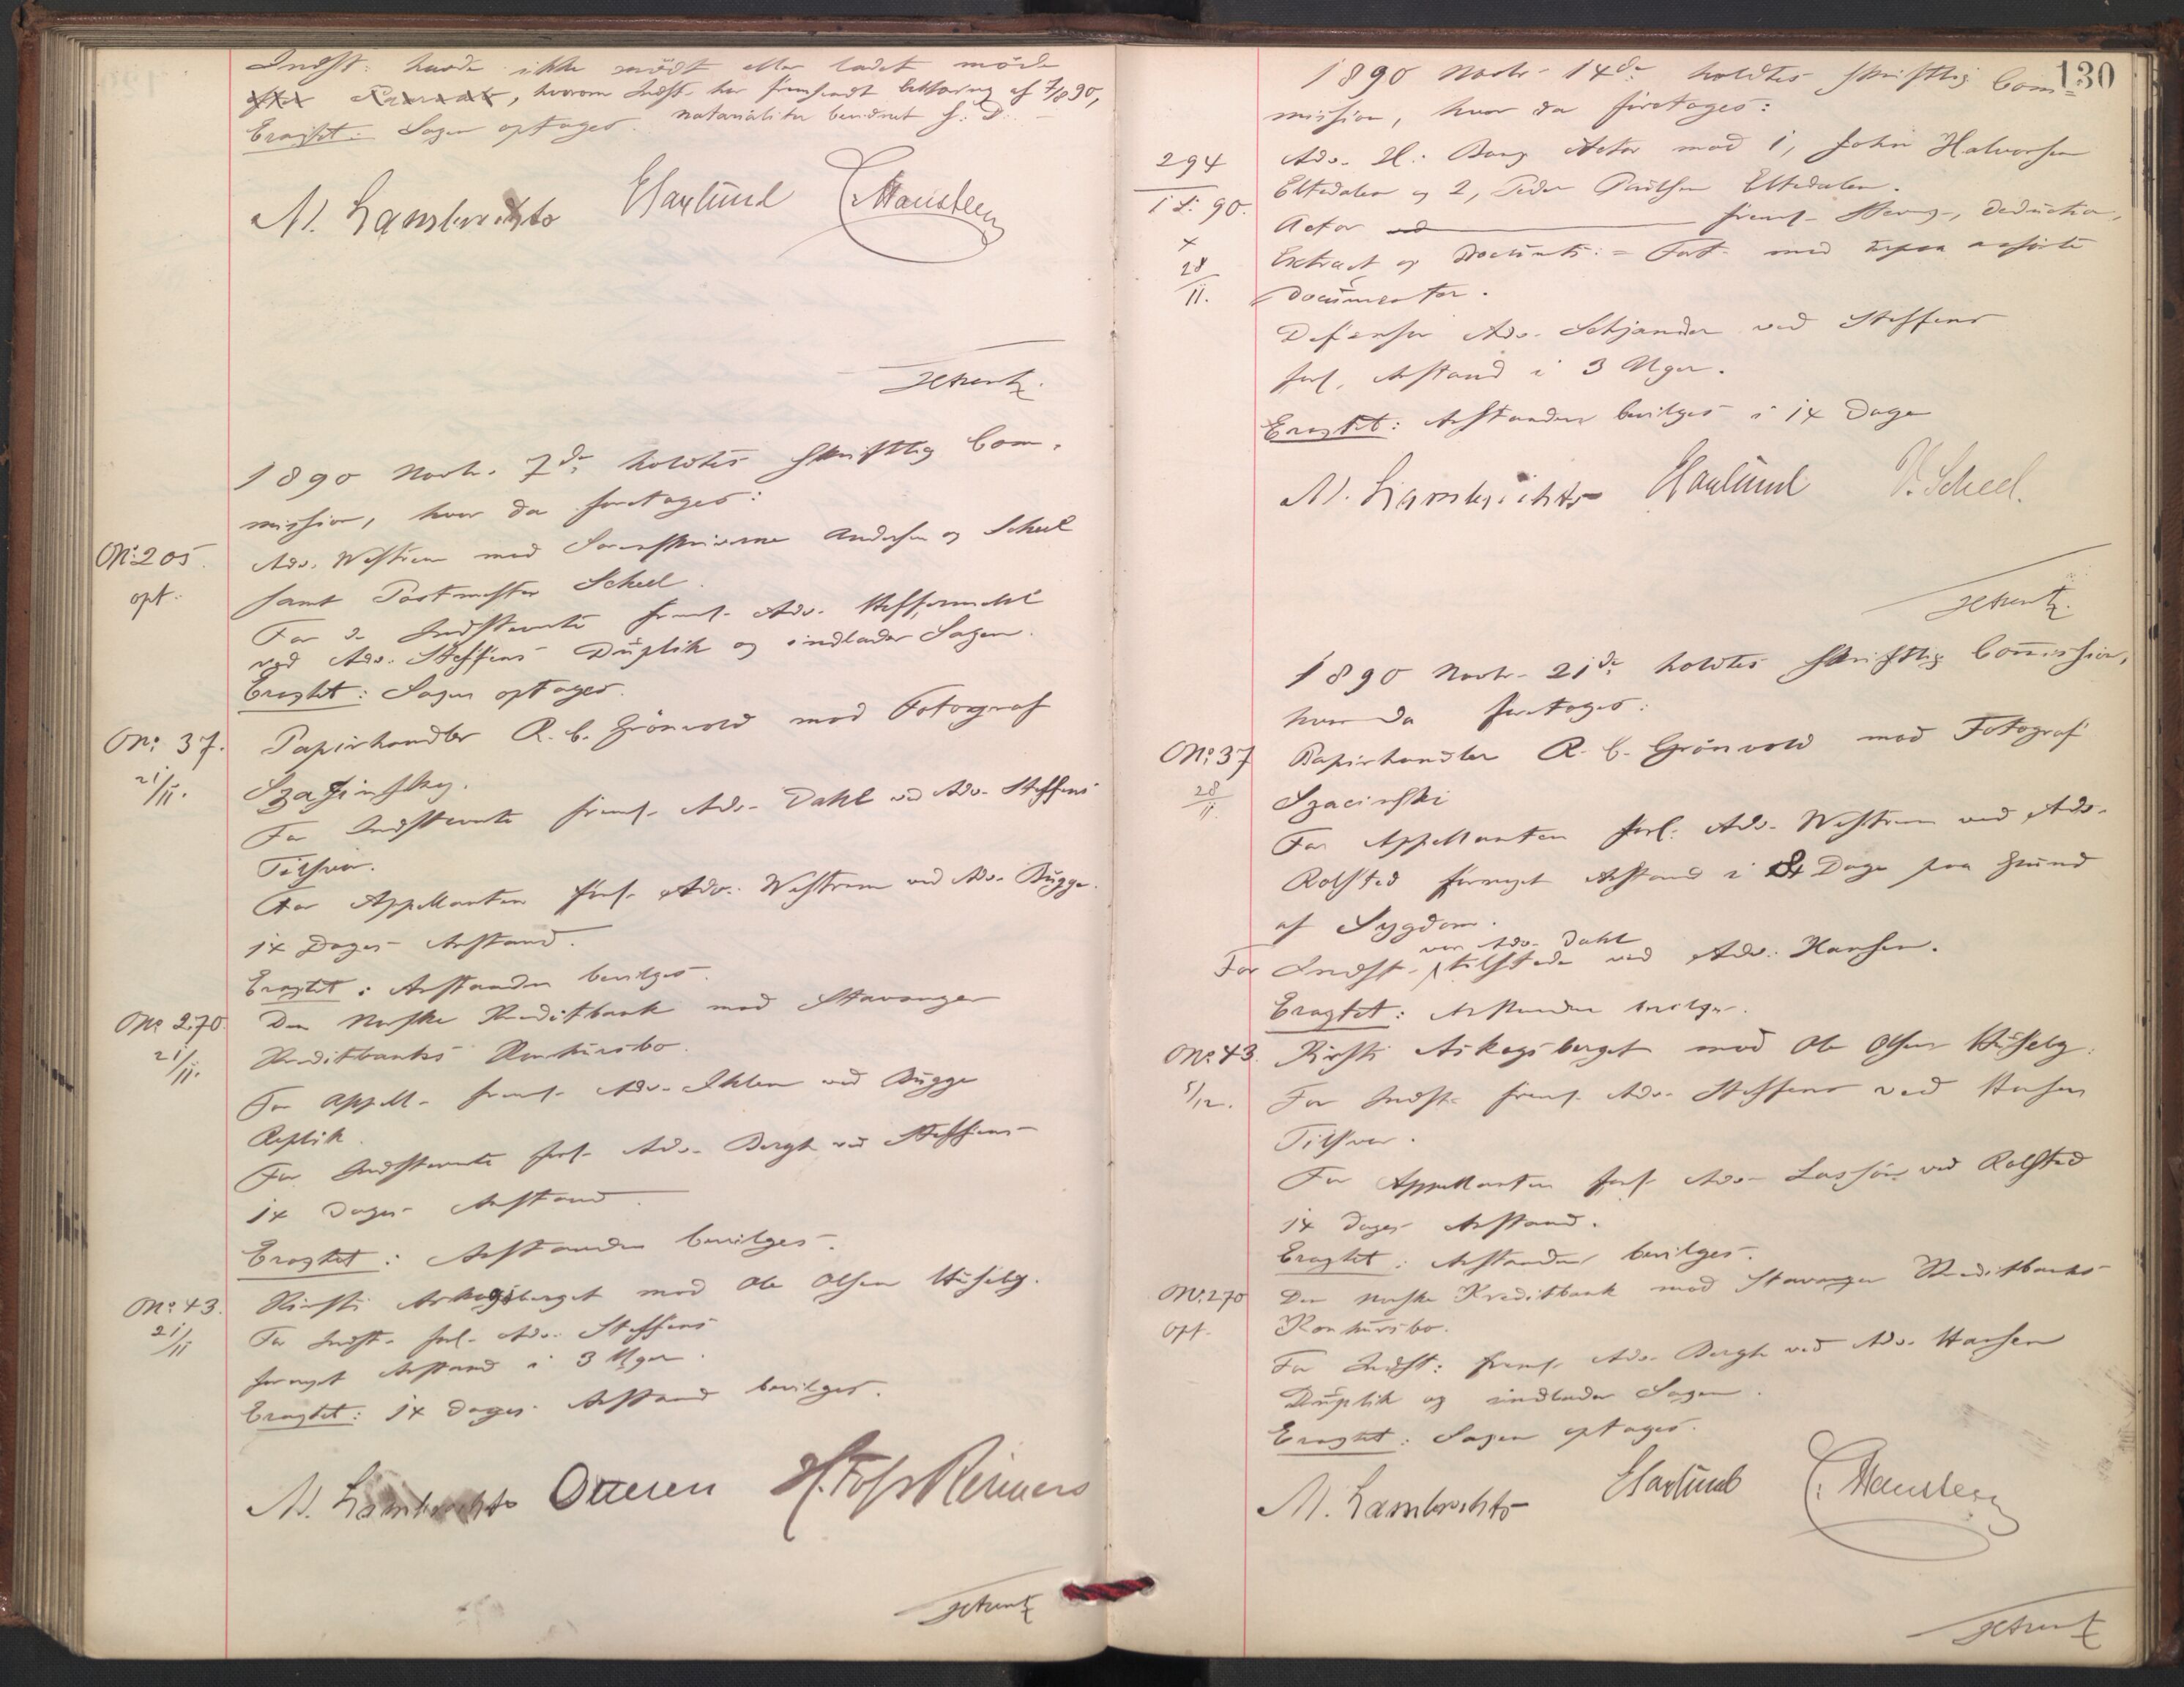 Indst. havde ikke mødt eller ladet møde
efter , hvorom Indst. har fremsendt Erklæring af 7/8 90,
Eragtet: Sagen optages. notarialiter bevidnet s. D.
M. Lambrechts EHaxlund C. Mansteen
Schentz.
1890 Novb. 7de holdtes skriftlig Com-
mission, hvor da foretoges:
No. 205. Adv. Westrum mod Sorenskriverne Andersen og Scheel
opt. samt Postmester Scheel.
For de Indstevnte freml. Adv.
ved Adv. Steffens Duplik og indlader Sagen.
Eragtet: Sagen optages.
No. 37. Papirhandler R. C. Grönvold mod Fotograf
21/11. Szaçinsky.
For Indstevnte freml. Adv. Dahl ved Adv. Steffens
Tilsvar.
For Appellanten forl. Adv. Westrum ved Adv. Bugge
14 Dages Anstand.
Eragtet: Anstanden bevilges.
No. 270. Den norske Kreditbank mod Stavanger
21/11. Kreditbanks Konkursbo.
For Appell. freml. Adv. Ihlen ved Bugge
Replik.
For Indstevnte forl. Adv. Bergh ved Steffens
14 Dages Anstand.
Eragtet: Anstanden bevilges.
No. 43. Kirsti Askogsberget mod Ole Olsen Huseby.
21/11 For Indst. forl. Adv. Steffens
fornyet Anstand i 3 Uger.
Eragtet: 14 Dages Anstand bevilges.
M. Lambrechts Ottesen H. Foss Reimers
Schentz
130
1890 Novb. 14de holdtes skriftlig Com=
mission, hvor da foretoges:
294 Adv. H. Bang Actor mod 1, John Halvorsen
1 S. 90. Eltedalen og 2, Peder Paulsen Eltedalen.
Actor freml. Stevn., Deduction,
+ Extract og Documents: = Fort. med derpaa anførte
28/11. Documenter.
Defensor Adv. Schjander ved Steffens
forl. Anstand i 3 Uger.
Eragtet: Anstanden bevilges i 14 Dage
M. Lambrechts EHaxlund V. Scheel.
Schentz.
1890 Novb. 21de holdtes skriftlig Commission,
hvor da foretoges:
No. 37 Papirhandler R. C. Grönvold mod Fotograf
28/11 Szacinski
For Appellanten forl. Adv. Westrum ved Adv.
Rolsted fornyet Anstand i 8 Dage paa Grund
af Sygdom.
var Adv. Dahl
For Indst. tilstede ved Adv. Hansen.
Eragtet: Anstanden bevilges.
No. 43. Kirsti Askogsberget mod Ole Olsen Huseby.
5/12. For Indst. freml. Adv. Steffens ved Hansen
Tilsvar.
For Appellanten forl. Adv. Lassen ved Rolsted
14 Dages Anstand.
Eragtet: Anstanden bevilges.
No. 270 Den norske Kreditbank mod Stavanger Kreditbanks
opt. Konkursbo.
For Indst: freml. Adv. Bergh ved Adv. Hansen
Duplik og indlader Sagen.
Eragtet: Sagen optages.
M. Lambrechts EHaxlund C. Mansteen
Schentz